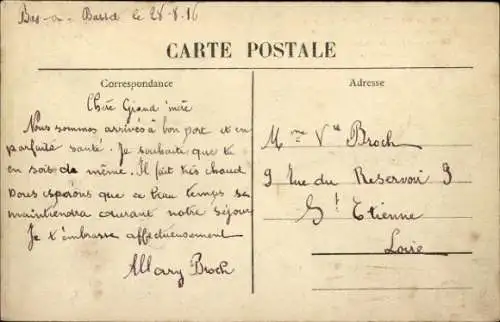 Bas-en-Basset le 28-8-16
CARTE POSTALE
Correspondance
Chère Grand'mère
Nous sommes arrivés à bon port et en
parfaite santé. Je souhaite que tu
en sois de même. Il fait très chaud
Nous espérons que ce beau temps se
maintiendra courant notre séjour
Je t'embrasse affectueusement
Mary Broch
Adresse
Mme Vve Broch
9 Rue du Reservoir 9
St Etienne
Loire